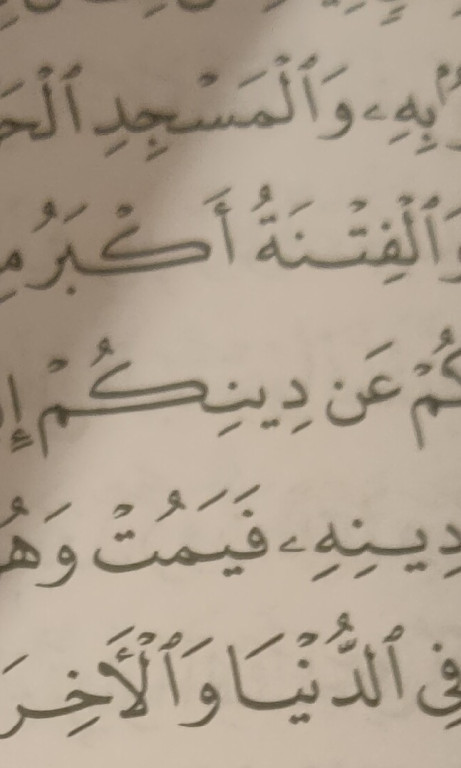 بِهِۦ وَٱلْمَسْجِدِ ٱلْحَ
وَٱلْفِتْنَةُ أَكْبَرُ مِ
كُمْ عَن دِينِكُمْ إِ
دِينِهِۦ فَيَمُتْ وَهُ
فِى ٱلدُّنْيَا وَٱلْأَخِرَ